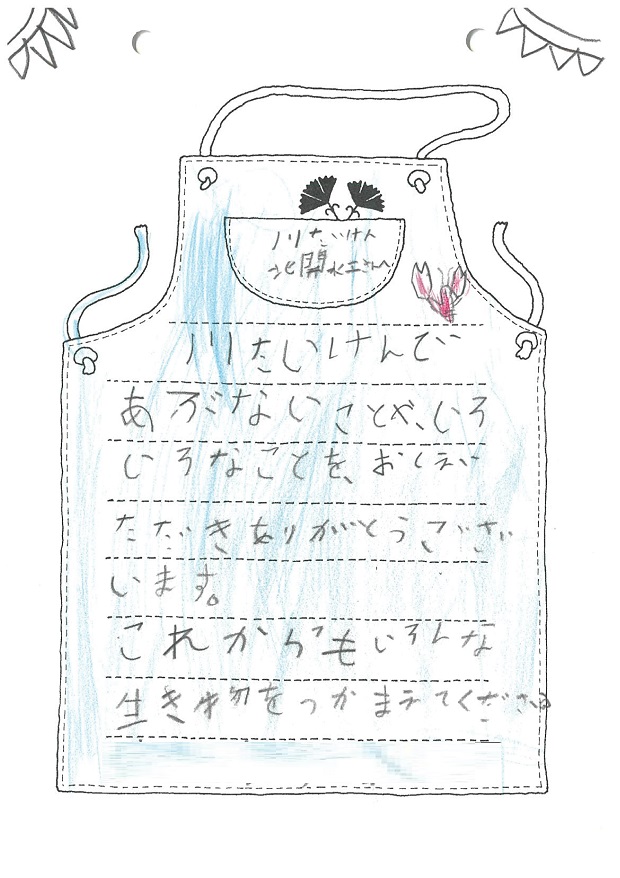 川たいけん
北開水工さんへ
川たいけんで
あぶないことや、いろ
いろなことを、おしえい
ただきありがとうござ
います。
これからもいろんな
生き物をつかまえてください